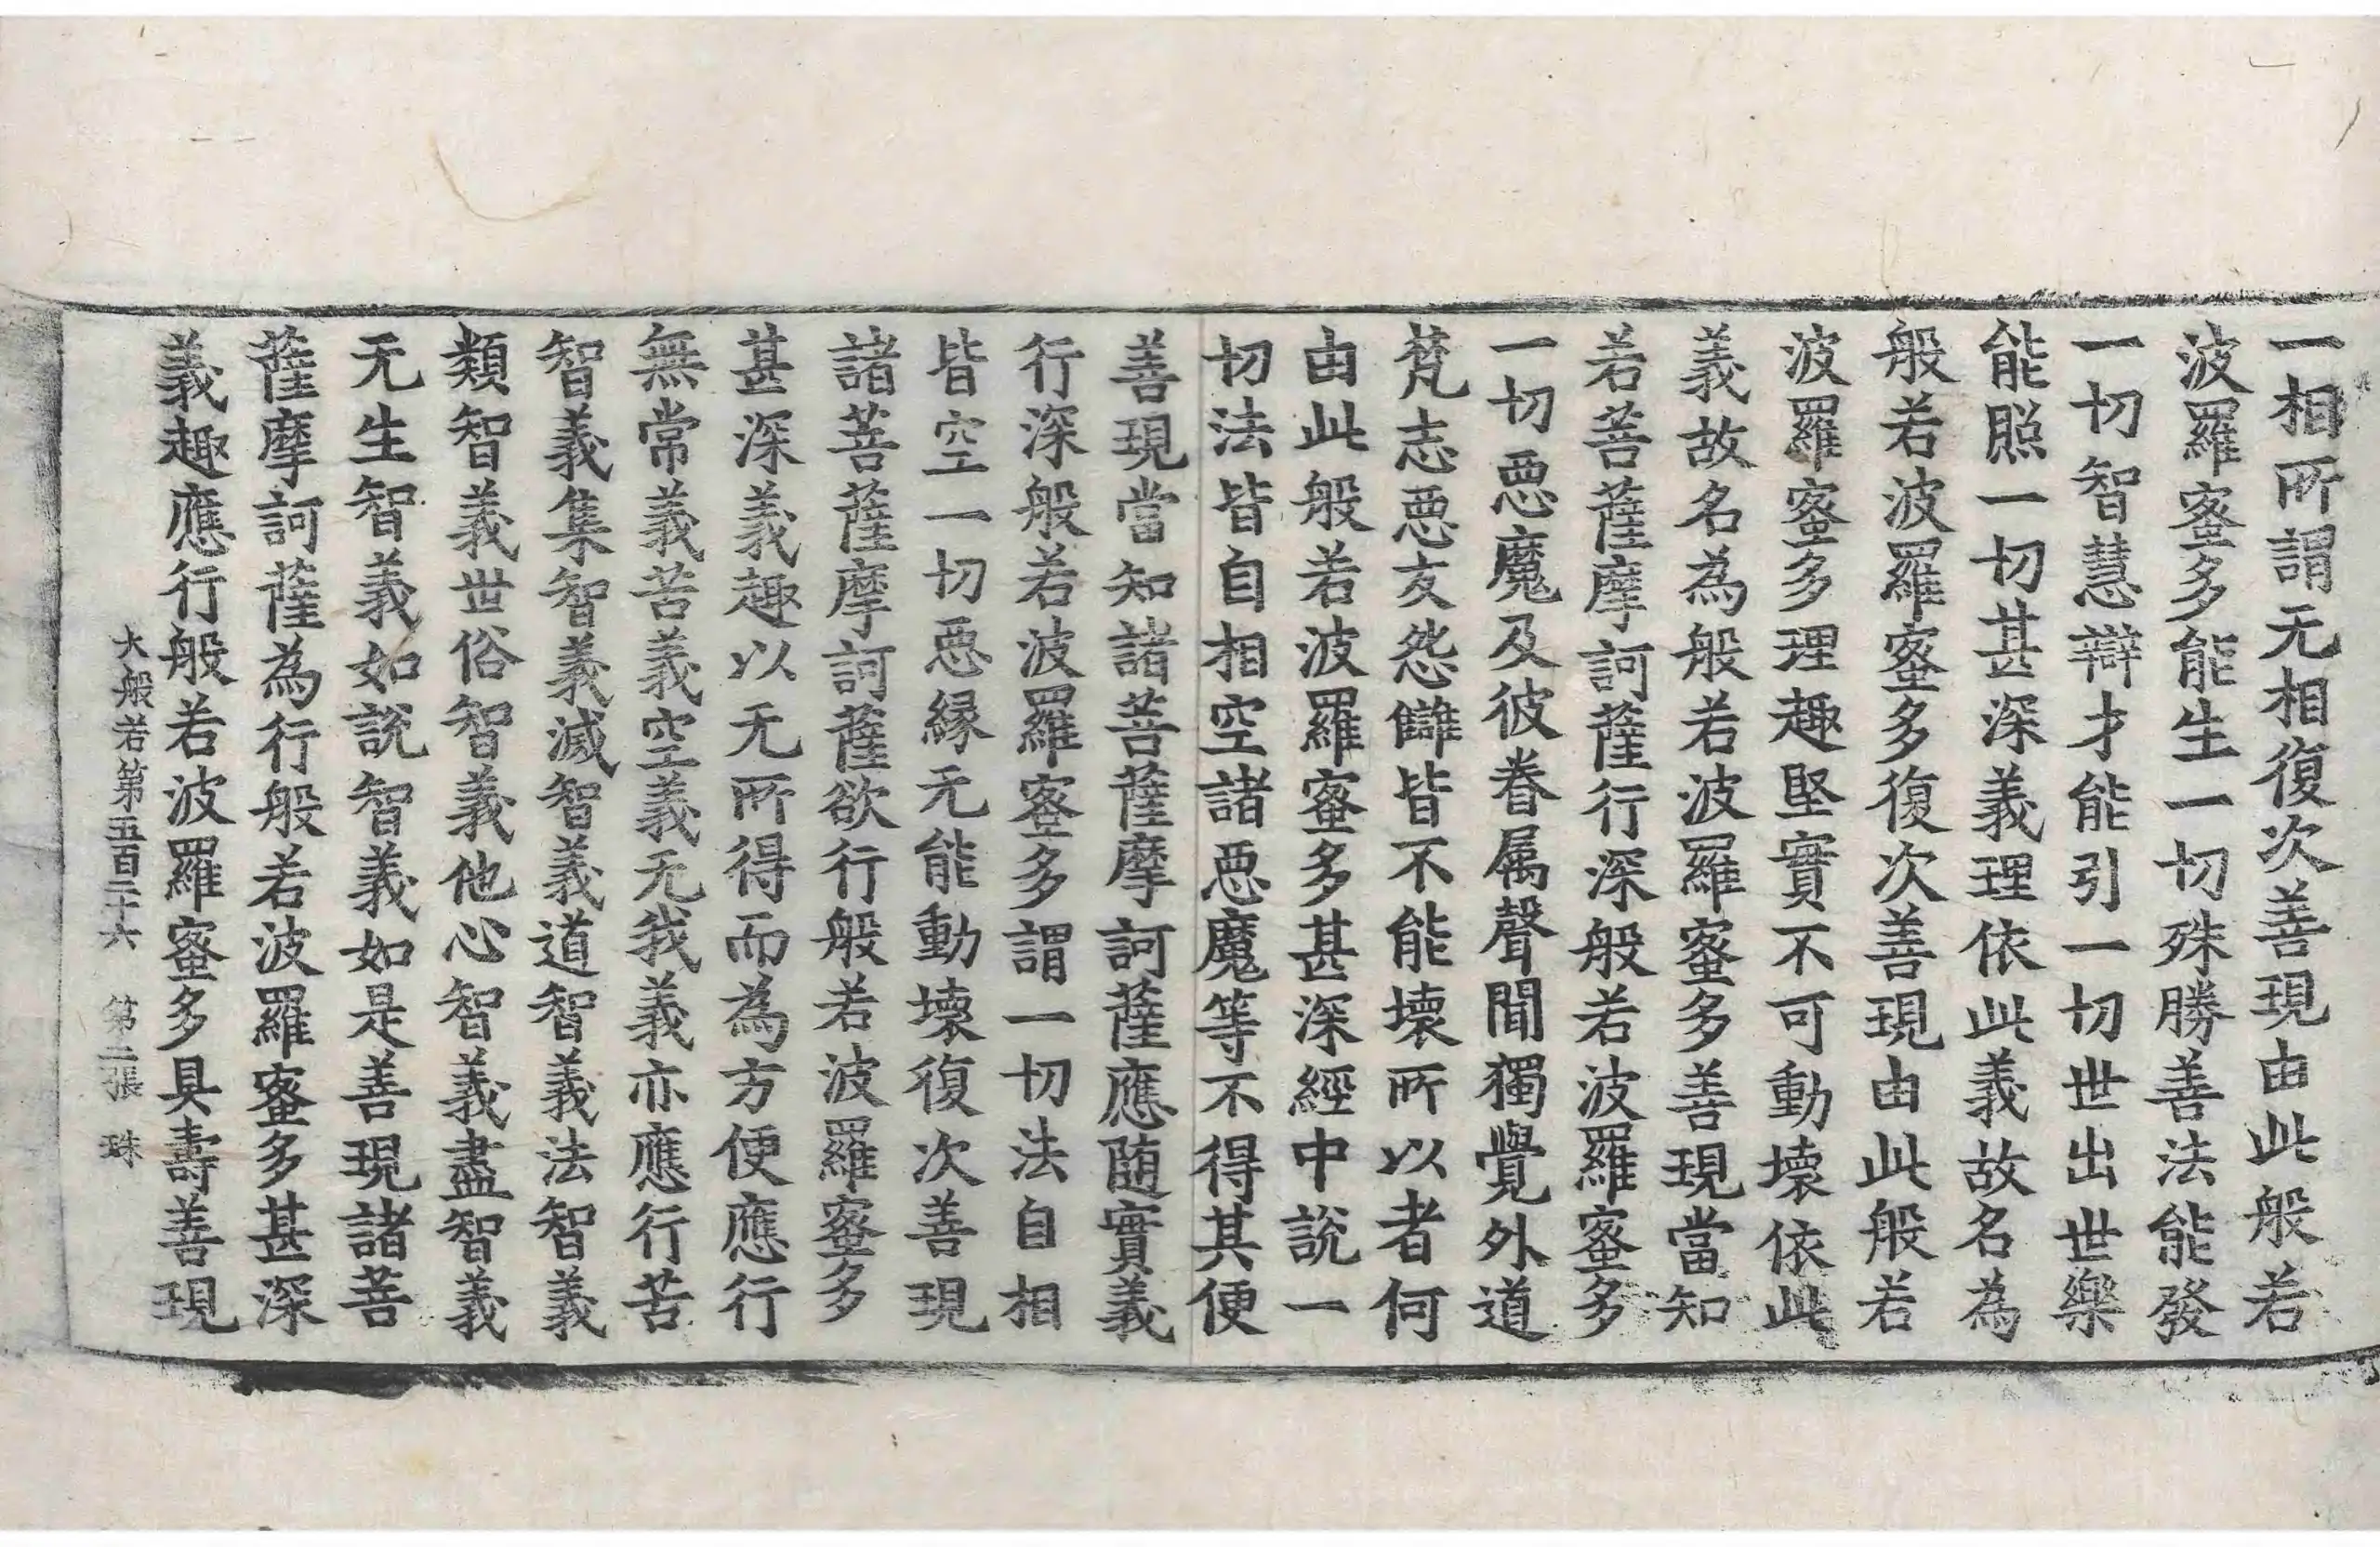 一相所謂无相復次善現由此般若
波羅蜜多能生一切殊勝善法能發
一切智慧辯才能引一切世出世樂
能照一切甚深義理依此義故名為
般若波羅蜜多復次善現由此般若
波羅蜜多理趣堅實不可動壞依此
義故名為般若波羅蜜多善現當知
若菩薩摩訶薩行深般若波羅蜜多
一切惡魔及彼眷属聲聞獨覺外道
梵志惡友怨讎皆不能壞所以者何
由此般若波羅蜜多甚深經中說一
切法皆自相空諸惡魔等不得其便
善現當知諸菩薩摩訶薩應隨實義
行深般若波羅蜜多謂一切法自相
皆空一切惡緣无能動壞復次善現
諸菩薩摩訶薩欲行般若波羅蜜多
甚深義趣以无所得而為方便應行
無常義苦義空義无我義亦應行苦
智義集智義滅智義道智義法智義
類智義世俗智義他心智義盡智義
无生智義如說智義如是善現諸菩
薩摩訶薩為行般若波羅蜜多甚深
義趣應行般若波羅蜜多具壽善現
大般若第五百二十六 第二張 珠